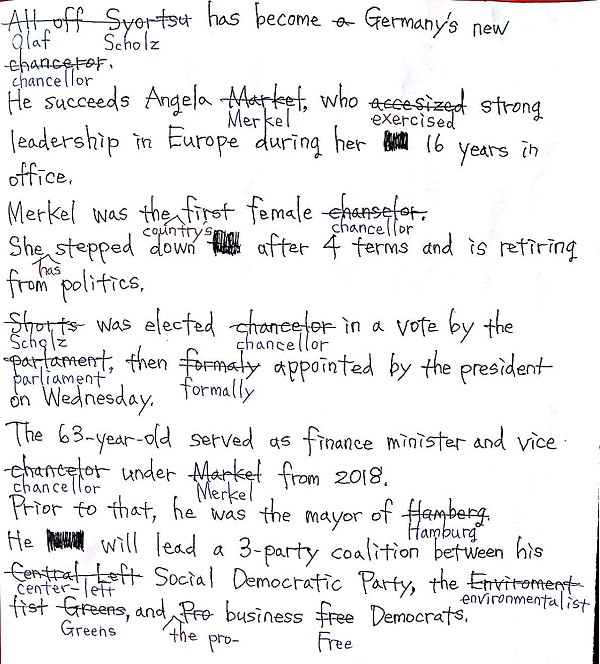 All off Syortsu has become a Germany's new
Olaf Scholz
chanceror.
chancellor
He succeeds Angela Market, who accesized strong
Merkel exercised
leadership in Europe during her 16 years in
office.
Merkel was the first female chanselor.
country's chancellor
She stepped down after 4 terms and is retiring
has
from politics.
Shorts was elected chancelor in a vote by the
Scholz chancellor
parlament, then formaly appointed by the president
parliament formally
on Wednesday.
The 63-year-old served as finance minister and vice
chancelor under Market from 2018.
chancellor Merkel
Prior to that, he was the mayor of Hamberg.
Hamburg
He will lead a 3-party coalition between his
Central Left Social Democratic Party, the Enviroment
center-left environmentalist
tist Greens, and Pro business free Democrats.
Greens the pro- Free